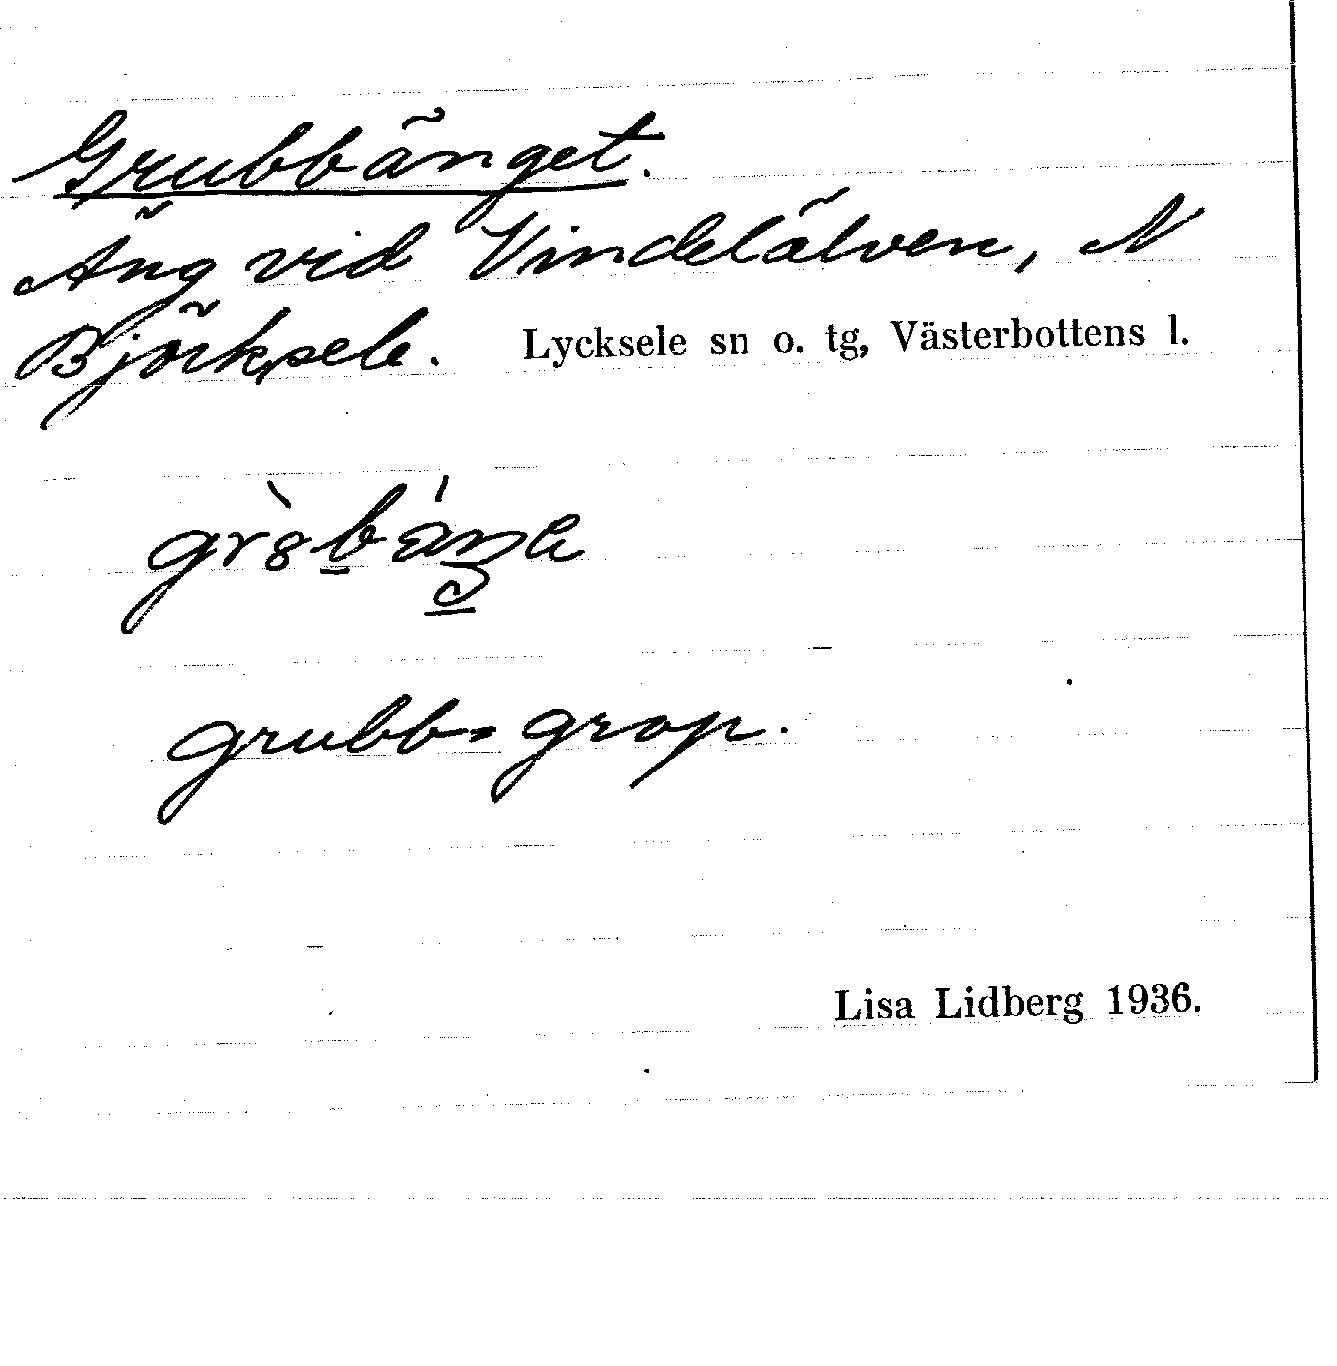 Grubbänget.
Äng vid Vindelälven, N
Björksele. Lycksele sn o. tg, Västerbottens l.
grubb = grop.
Lisa Lidberg 1936.